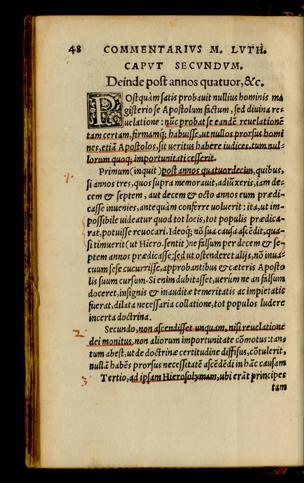 48 COMMENTARIVS M. LVTH.
CAPVT SECVNDVM.
Deinde post annos quatuor, &c.
POstquàm satis probauit nullius hominis ma
gisterio se Apostolum factum, sed diuina re-
uelatione: nũc probat se eandẽ reuelationẽ
tam certam, firmamq́; habuisse, ut nullos prorsus homi
nes, etiã Apostolos, sit ueritus habere iudices, tum nul-
lorum quoq; importunitati cesserit.
Primum (inquit) post annos quatuordecim, quibus,
si annos tres, quos supra memorauit, adiũxeris, iam de-
cem & septem, aut decem & octo annos eum prædi-
casse inuenies, antequàm conferre uoluerit: ita, ut im-
possibile uideatur quod tot locis, tot populis prædica-
rat, potuisse reuocari. Ideoq́; nõ sua causa ascẽdit, qua-
si timuerit (ut Hiero. sentit) ne falsum per decem & se-
ptem annos prædicasse: sed ut ostenderet alijs, nõ inua-
cuum se se cucurrisse, approbantibus & cæteris Aposto
lis suum cursum. Si enim dubitasset, uerum ne an falsum
doceret, insignis & inauditæ temeritatis ac impietatis
fuerat, dilata necessaria collatione, tot populos ludere
incerta doctrina.
2 Secundo, non ascendisset unquam, nisi reuelatione
dei monitus, non aliorum importunitate cõmotus: tan-
tum abest, ut de doctrinæ certitudine diffisus, cõtulerit,
nullã habẽs prorsus necessitatẽ ascẽdẽdi in hãc causam
3 Tertio, ad ipsam Hierosolymam, ubi erãt principes
tam